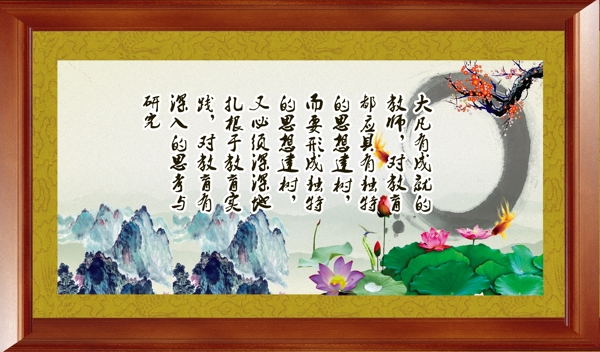 大凡有成就的
教师，对教育
都应具有独特
的思想建树，
而要形成独特
的思想建树，
又必须深深地
扎根于教育实
践，对教育有
深入的思考与
研究